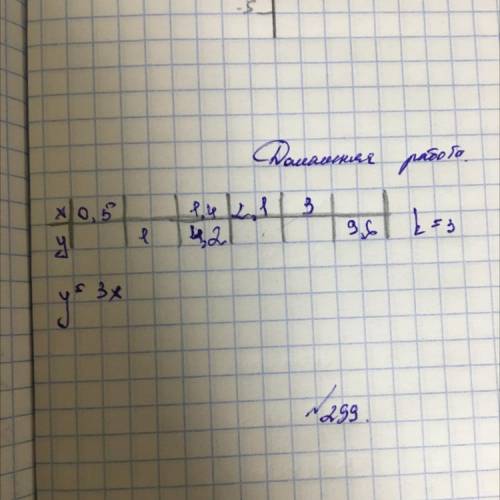 -5
Домашняя работа.
x 0,5 1,4 2,1 3
y 1 4,2 9,6 k = 3
y = 3x
№299.